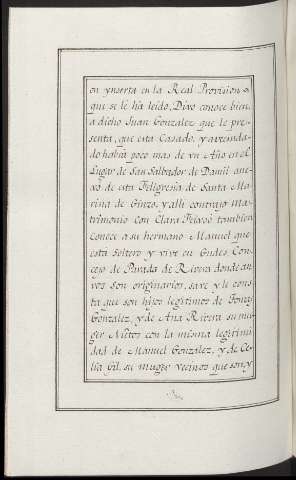 on ynserta en la Real Provision
qui se le ha leido, Dixo conoce bien
a dicho Juan Gonzalez que le pre-
senta, que esta Casado, y avecinda-
do habra poco mas de vn Año en el
Lugar de San Salbador de Damil ane-
xo de esta Feligresia de Santa Ma-
rina de Ginzo, y alli contrajo ma-
trimonio con Clara Feixoó tambien
conoce a su hermano Manuel que
esta Soltero y vive en Gudes Con-
cejo de Parada de Rivera donde am-
vos son originarios, save y le cons-
ta que son hijos legitimos de
Gonzalez, y de Ana Rivera su mu-
ger Nietos con la misma legitimi-
dad de Manuel Gonzalez, y de Ce-
lia Gil, su muger vecinos que son, y